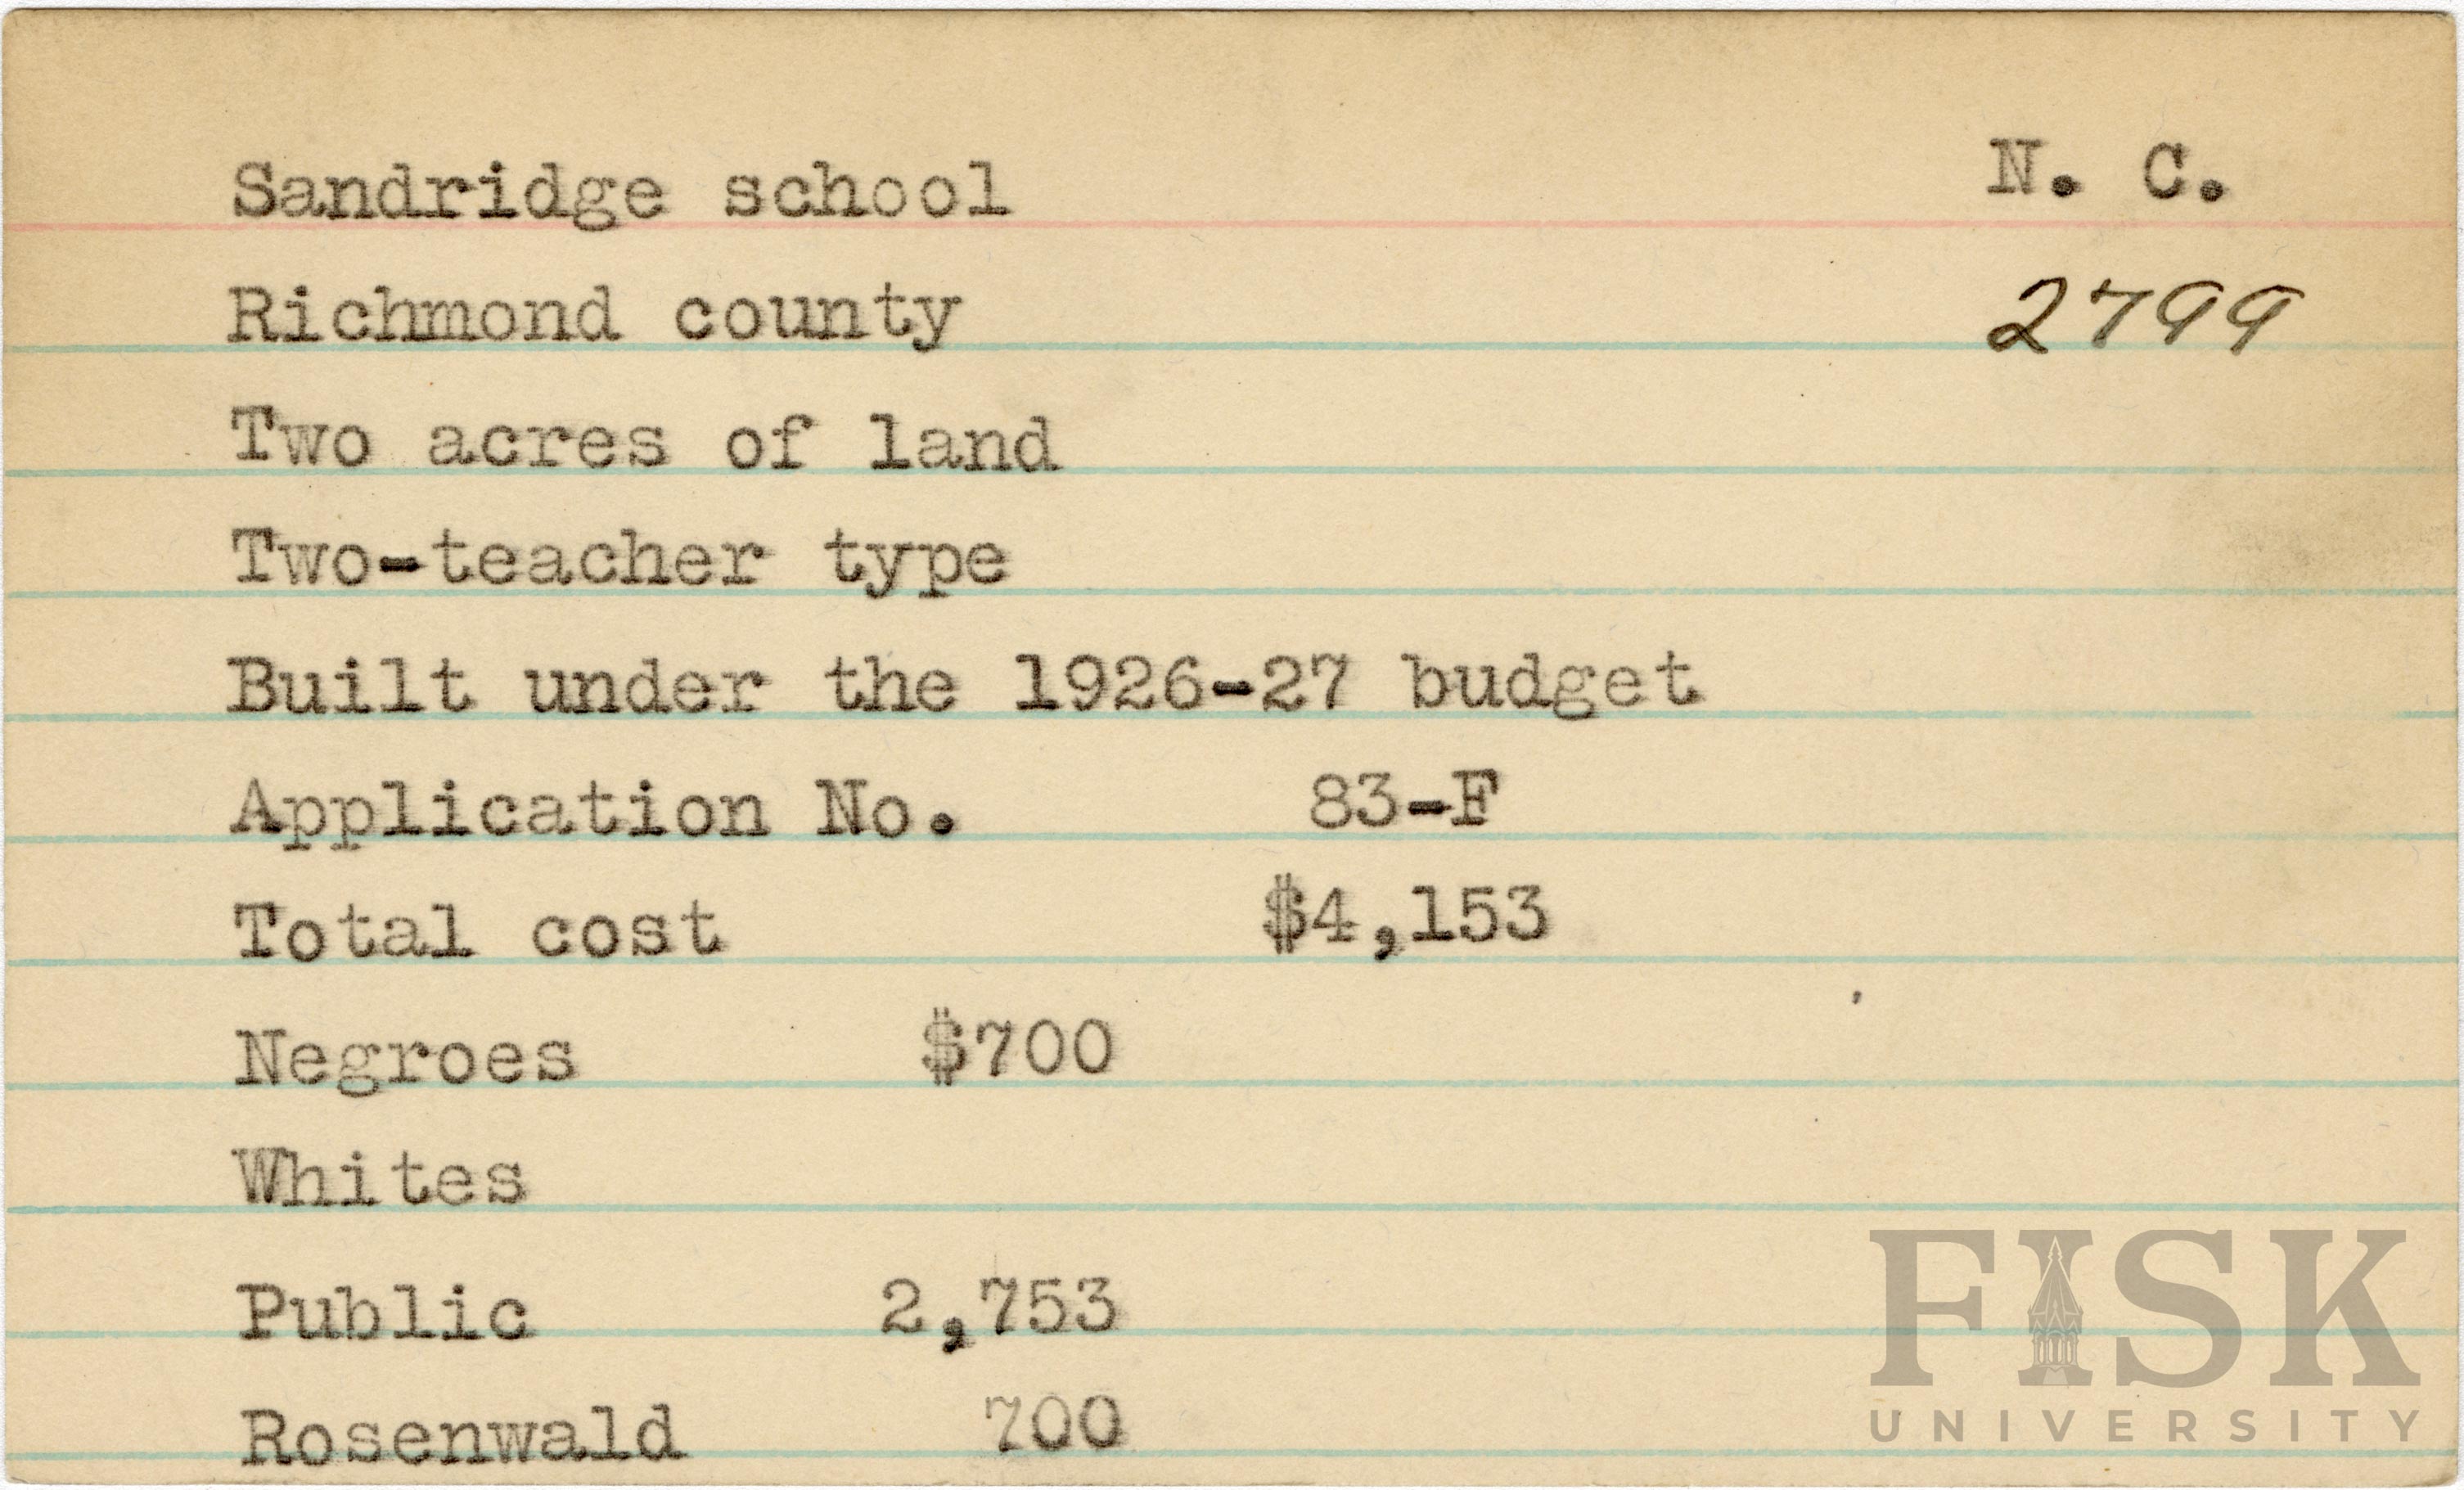 Sandridge school N. C.
Richmond county 2799
Two acres of land
Two-teacher type
Built under the 1926-27 budget
Application No. 83-F
Total cost $4,153
Negroes $700
Whites
Public 2,753
Rosenwald 700
FISK
UNIVERSITY